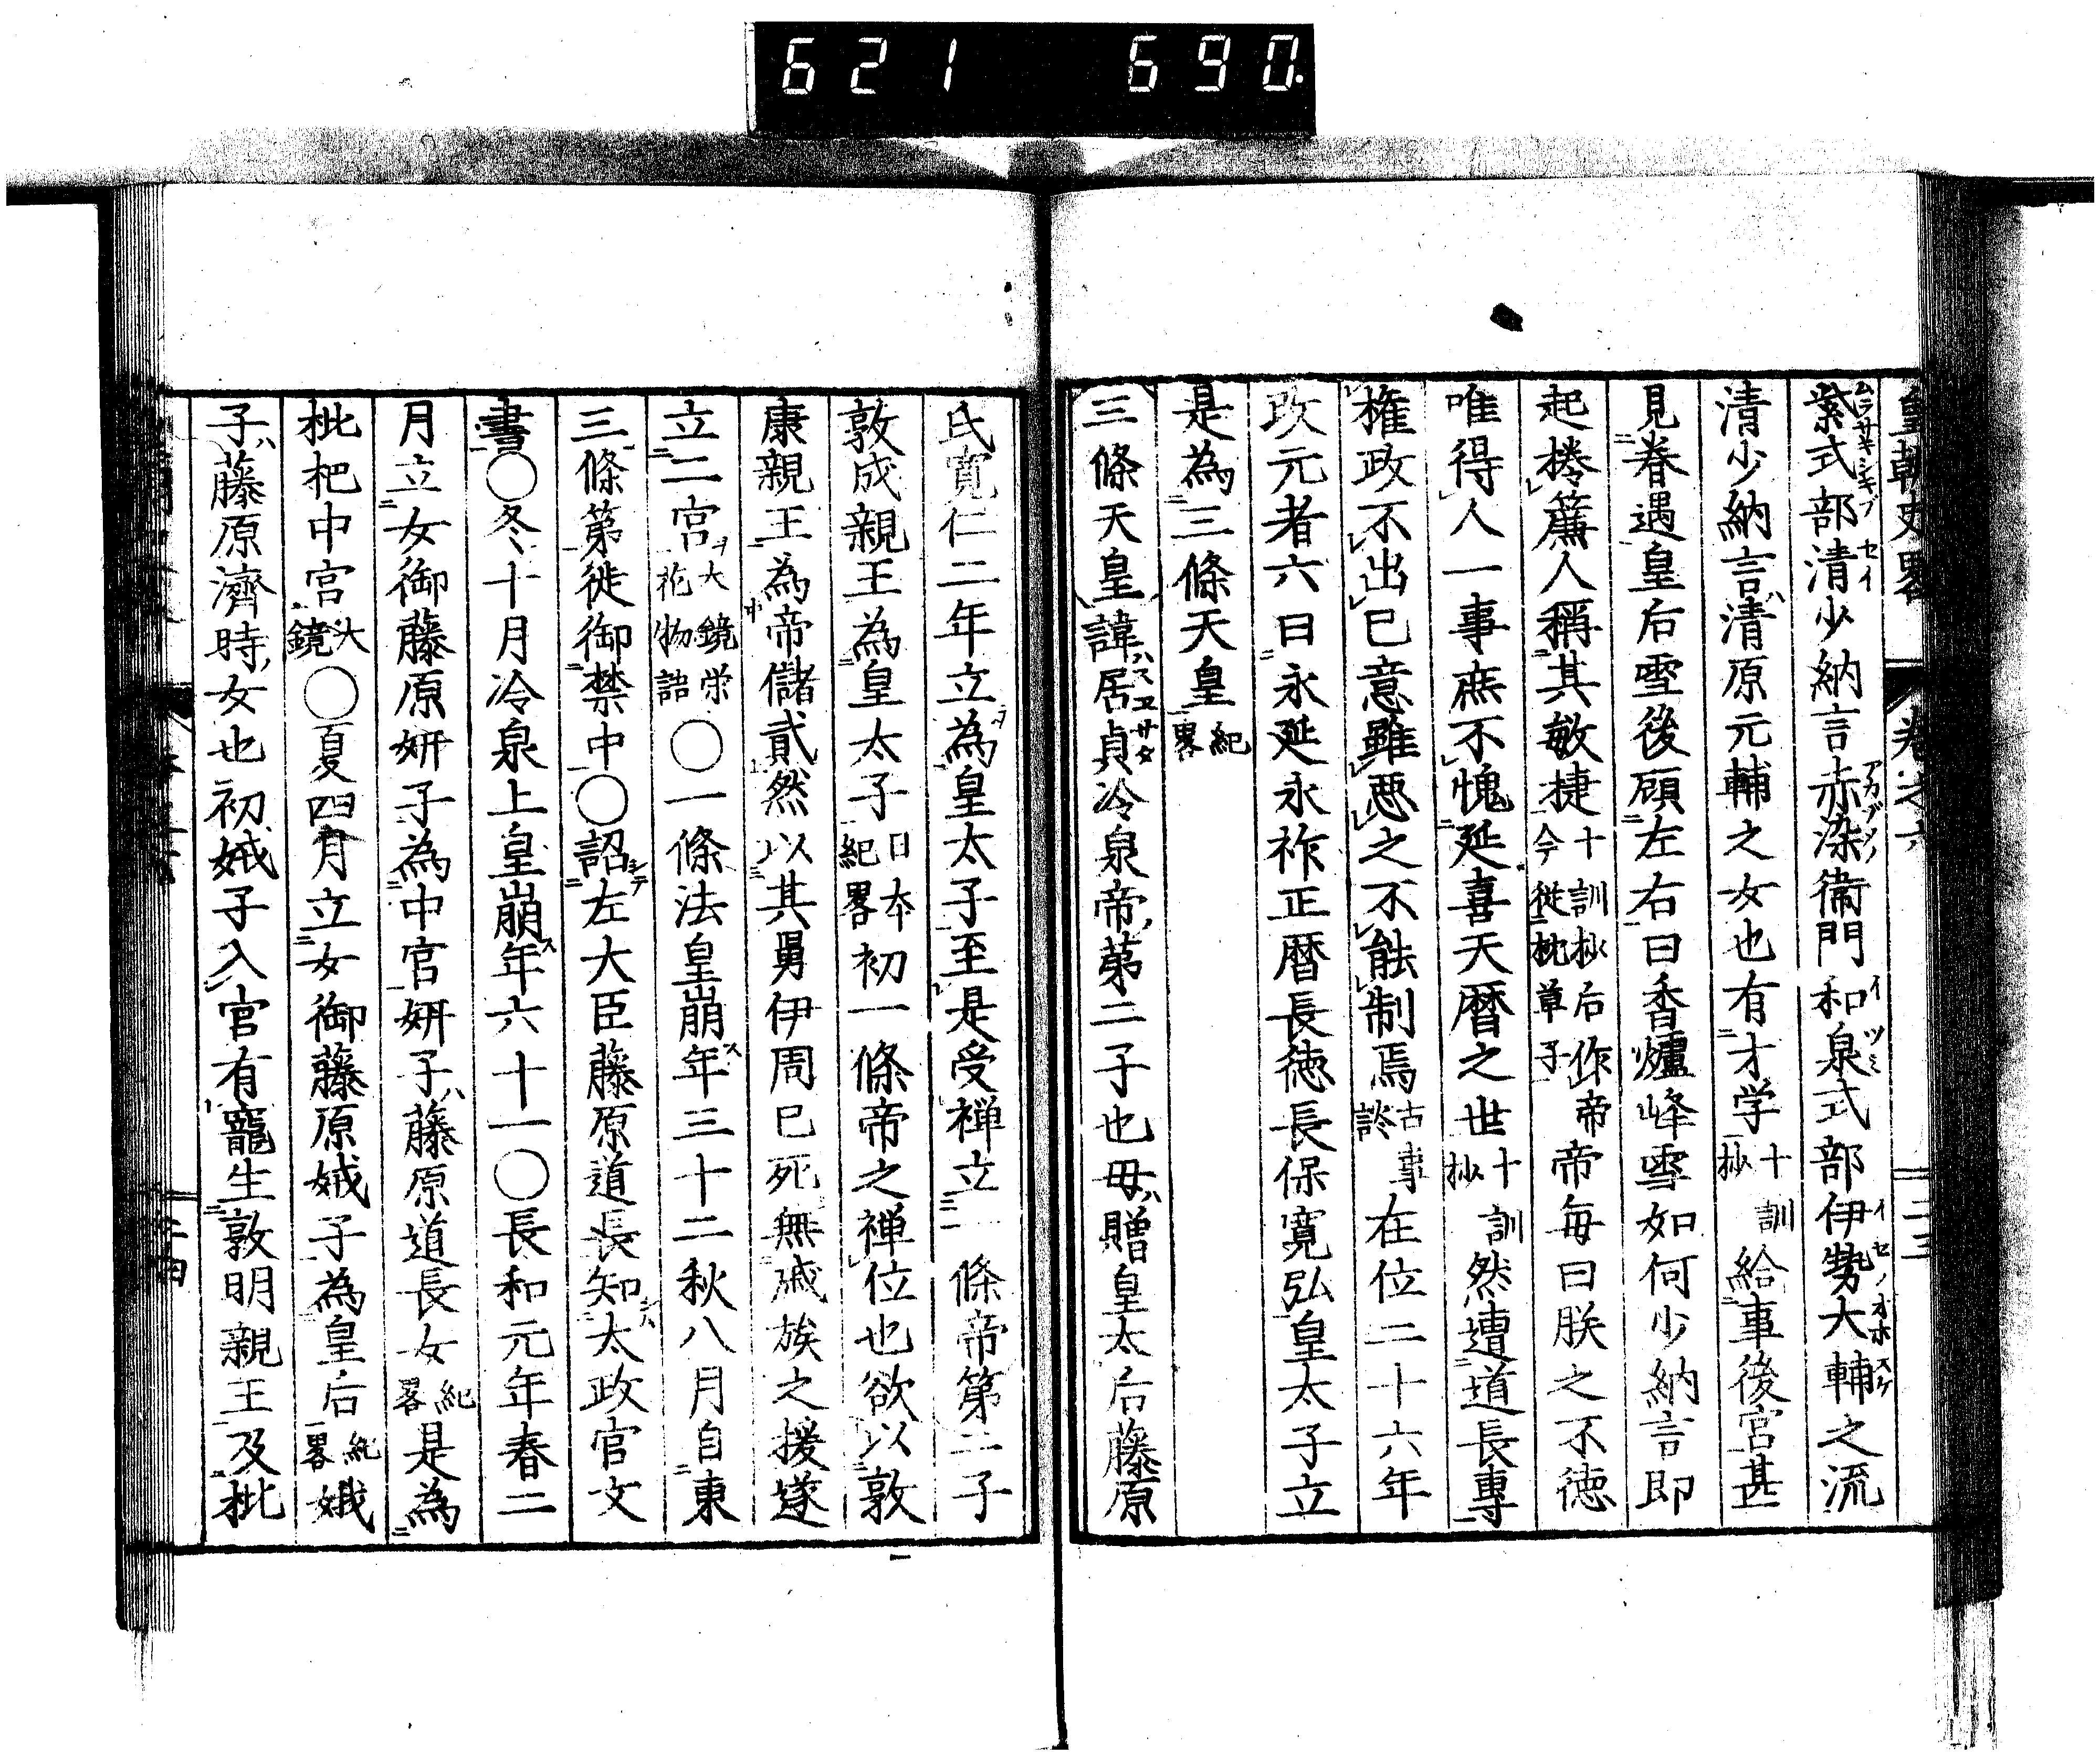 621 690.
皇朝史畧 卷之六 二十三
紫式部清少納言赤染衛門和泉式部伊勢大輔之流
清少納言清原元輔之女也有才学十訓抄給事後宮甚
見眷遇皇后雪後顧左右曰香爐峰雪如何少納言即
起捲簾人稱其敏捷十訓抄后作帝今從枕草子帝毎曰朕之不徳
唯得人一事庶不愧延喜天暦之世十訓抄然遭道長專
権政不出已意雖惡之不能制焉古事談在位二十六年
改元者六曰永延永祚正暦長徳長保寛弘皇太子立
是為三條天皇紀畧
三條天皇諱居貞冷泉帝第二子也毋贈皇太后藤原
氏寛仁二年立為皇太子至是受禅立一條帝第二子
敦成親王為皇太子日本紀畧初一條帝之禅位也欲以敦
康親王為帝儲貳然以其舅伊周已死無戚族之援遂
立二宮大鏡栄花物語〇一條法皇崩年三十二秋八月自東
三條第徙御禁中〇詔左大臣藤原道長知太政官文
書〇冬十月冷泉上皇崩年六十一〇長和元年春二
月立女御藤原妍子為中宮妍子藤原道長女紀畧是為
枇杷中宮大鏡〇夏四月立女御藤原娍子為皇后紀畧娍
子藤原濟時女也初娍子入宮有寵生敦明親王及枇